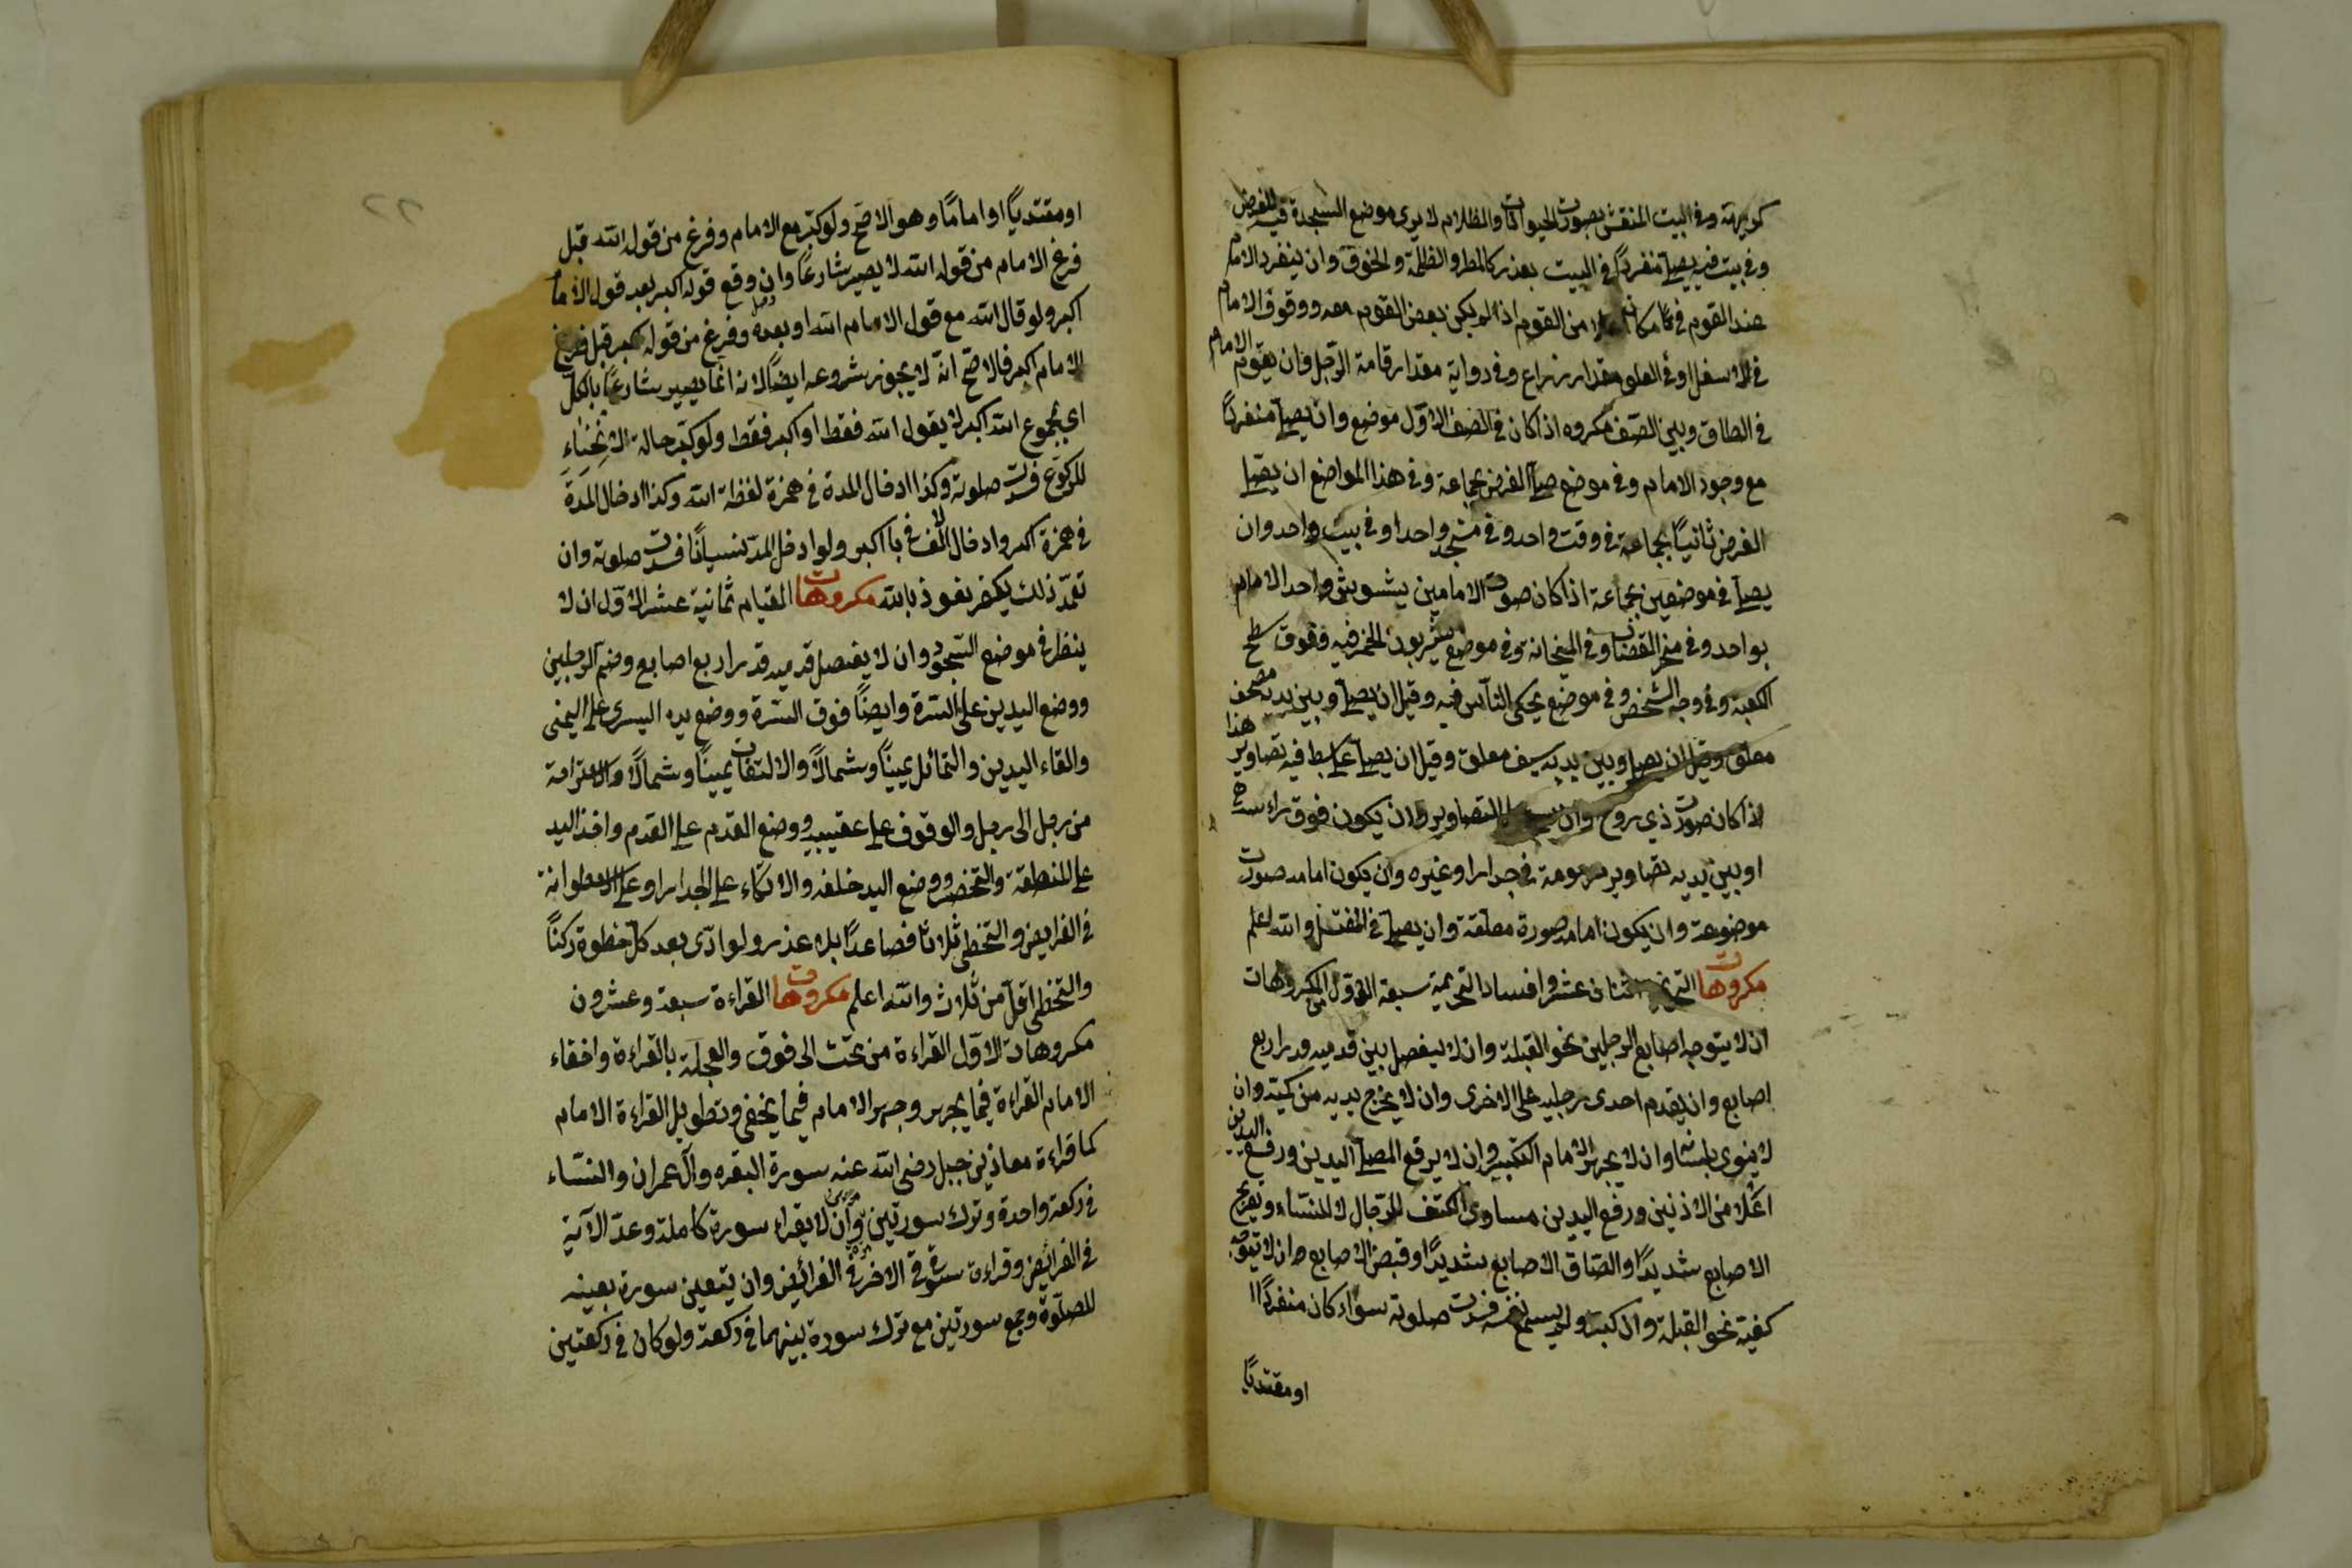 كريهة وفي البيت المنقش بصورت الحيوانات والظلام لا يرى موضع السجدة فيه الفرض
وفي بيت فيه يصلى منفردًا في البيت بعذر كالمطر والظلمة والخوف وان ينفرد الامام
عند القوم في مكان من القوم اذا لم يكن بعض القوم معه ووقوف الامام
في الاسفل او في العلو مقدار زراع وفي رواية مقدار قامة الرجل فان يقوم الامام
في الطاق وبين الصف مكروه اذا كان في الصف الاول موضع وان يصلى منفردًا
مع وجود الامام وفي موضع صلى الفرض بجماعة وفي هذا المواضع ان يصلى
الفرض ثانيًا بجماعة في وقت واحد وفي مسجد واحد او في بيت واحد وان
يصلى في موضعين بجماعة اذا كان صوت الامامين يشوش واحد الامام
بواحد وفي منحر القصاب وفي الميخانة وفي موضع يشربون الخمر فيه وفوق سطح
الكعبة وفي وجه الشخص وفي موضع يحكى الناس فيه وقيل ان يصلى وبين يديه مصحف
معلق وقيل ان يصلى وبين يديه سيف معلق وقيل ان يصلى على بسط فيه تصاوير هذا
اذا كان صورت ذي روح وان التصاوير وان يكون فوق راءسه
او بين يديه تصاوير مرسومة في جدار او غيره وان يكون امامه صورت
موضوعة وان يكون امامه صورة معلقة وان يصلى في المغتسل والله اعلم
مكروهات التحريمة اثنان عشر وافساد التحريمة سبعة الاول المكروهات
ان لا يتوجه اصابع الرجلين نحو القبلة وان لا يفصل بين قدميه قدر اربع
اصابع وان يقدم احدى رجليه على الاخرى وان لا يخرج يديه من كميه وان
لا ينوى بلسانه وان لا يجهر الامام التكبير وان لا يرفع المصلى اليدين ورفع اليدين
اعلا من الاذنين ورفع اليدين مساوى الكتف للرجال لا للنساء وتفريج
الاصابع شديدًا والصاق الاصابع شديدًا وقبض الاصابع وان لا يتوجه
كفيه نحو القبلة وان كبر ولم يسمع نفسه فسدت صلوته سواء كان منفردًا
او مقتديًا
او مقتديًا او امامًا وهو الاصح ولو كبر مع الامام وفرغ من قوله الله قبل
فرغ الامام من قوله الله لا يصير شارعًا وان وقع قوله اكبر بعد قول الامام
اكبر ولو قال الله مع قول الامام الله او بعده وفرغ من قوله اكبر قبل فرغ
الامام اكبر فالاصح انه لا يجوز شروعه ايضًا لانه انما يصير شارعًا بالكل
اى بمجموع الله اكبر لا يقول الله فقط او اكبر فقط ولو كبر حالة الانحناء
للركوع فسدت صلوته وكذا ادخال المدة في همزة لفظة الله وكذا ادخال المدة
في همزة اكبر وادخال الالف في با اكبر ولو ادخل المد نسيانًا فسدت صلوته وان
تعمد ذلك يكفر نعوذ بالله مكروهات القيام ثمانية عشر الاول ان لا
ينظر في موضع السجود وان لا يفصل قدميه قدر اربع اصابع وضم الرجلين
ووضع اليدين على السرة وايضًا فوق السرة ووضع يده اليسرى على اليمنى
والقاء اليدين والتمائل يمينًا وشمالاً والالتفات يمينًا وشمالًا والاستراحة
من رجل الى رجل والوقوف على عقبيه ووضع القدم على القدم واخذ اليد
على المنطقة والتخصر ووضع اليد خلفه والاتكاء على الجدار او على الاسطوانة
في الفرايض والتخطى ثلاثا فصاعدًا بلا عذر ولو ادى بعد كل خطوة ركنًا
والتخطى اقل من ثلاث والله اعلم مكروهات القراءة سبعة وعشرون
مكروهات الاول القراءة من تحت الى فوق والعجلة بالقراءة واخفاء
الامام القراءة فيما يجهر وجهر الامام فيما يخفى وتطويل القراءة الامام
كما قراءة معاذ بن جبل رضى الله عنه سورة البقره وآل عمران والنساء
في ركعة واحدة وترك سورتين وان لا يقراء سورة كاملة وعد الآية
في الفرايض وقراءة سورة في الاخرة في الفرائض وان يتعين سورة بعينه
للصلوة وجمع سورتين مع ترك سورة بينهما في ركعة ولو كان في ركعتين